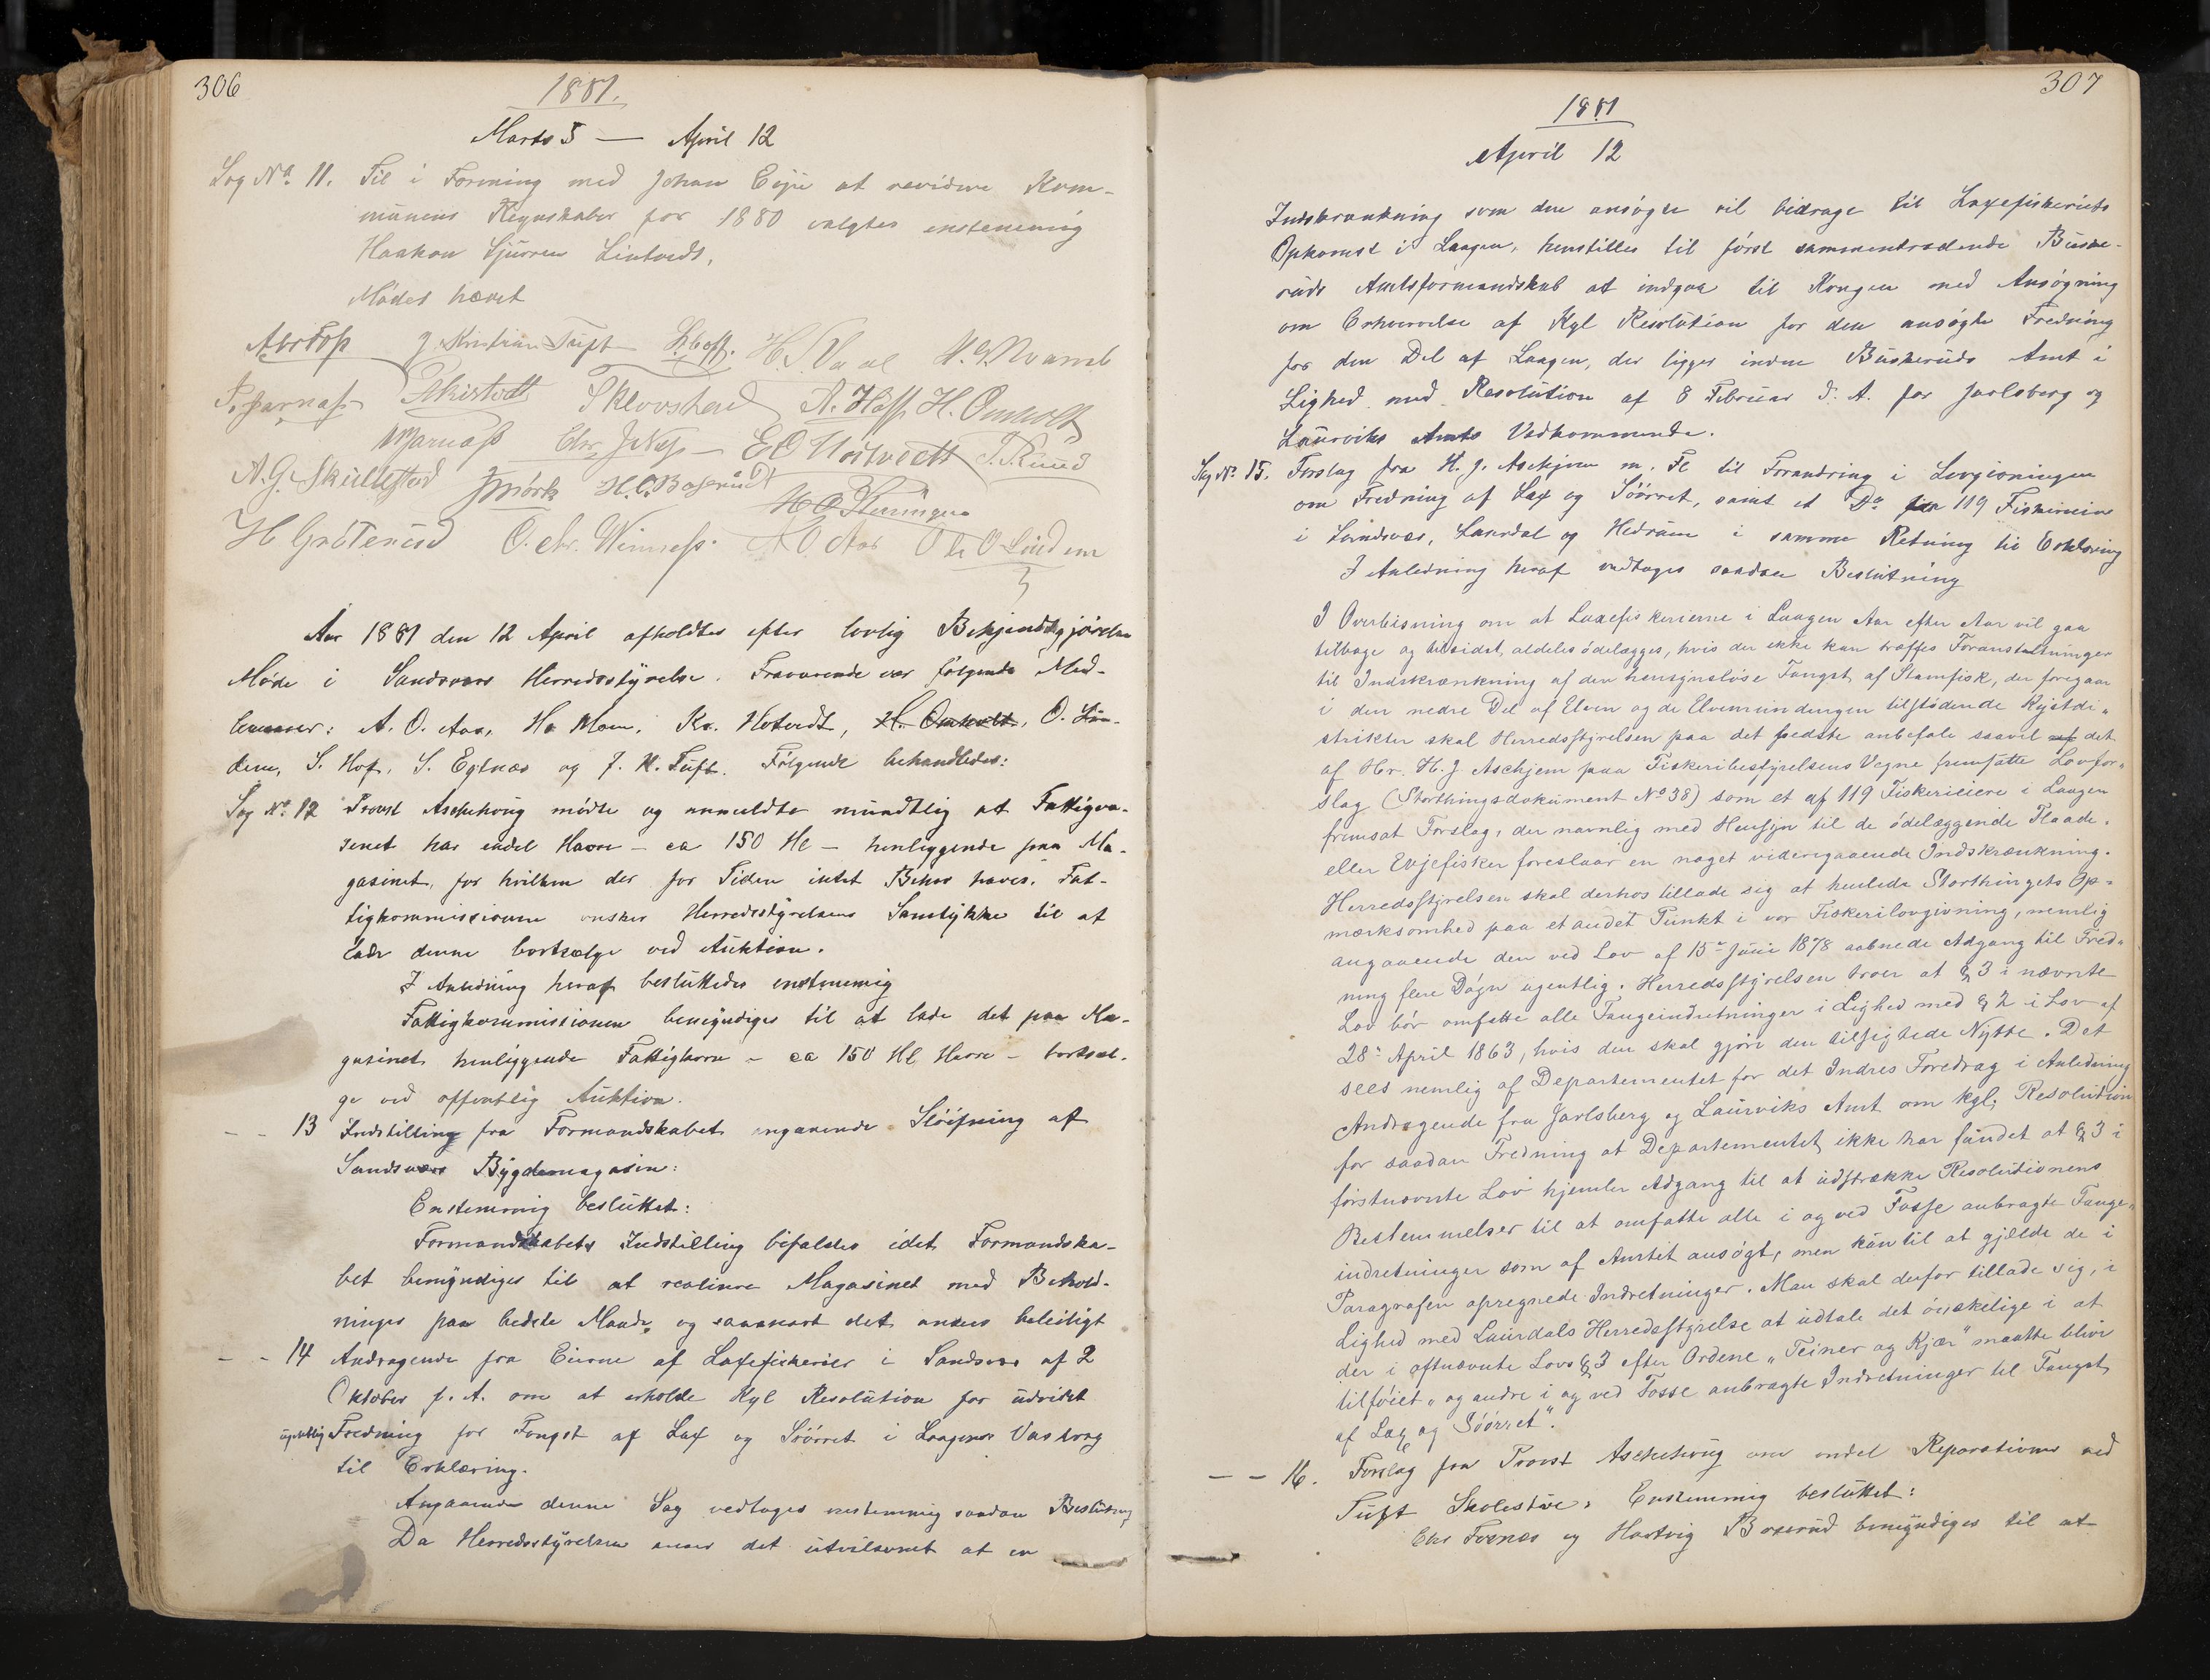 306
1881.
Marts 5 — April 12
Sag No. 11. Til i Forening med Johan Eije at revidere Kom-
munens Regnskaber for 1880 valgtes enstemmig
Haakon Lintvedt.
Mødet hævet
J. Kristian Tuft H. S. Vaal
T. Klovstad A. Hoff H. Omholt
Chr. J. Næss E O Hostvedt T. Ruud
A. G. Skullestad J Mørk H. C. Boserud
H Gröterud O. Chr. Winness. A O Aas Ole O Linden
Aar 1881 den 12 April afholdtes efter lovlig Bekjendtgjørelse
Møde i Sandsvars Herredsstyrelse. Fraværende var følgende Med-
lemmer: A. O. Aas, Ha Moen, Kr. Hotvedt, H. Omholt, O. Lin-
dem, S. Hof, S. Egtnæs og J. K. Tuft. Følgende behandledes:
Sag No. 12 Provst Aschehoug mødte og anmeldte mundtlig at Fattigvæ-
senet har endel Havre – ca 150 Hl – henliggende paa Ma-
gasinet, for hvilken der for Tiden intet Behov haves. Fat-
tigkommissionen ønsker Herredsstyrelsens Samtykke til at
lade denne bortsælge ved Auktion.
I Anledning heraf besluttedes enstemmig
Fattigkommissionen bemyndiges til at lade det paa Ma-
gasinet henliggende Fattigkorn – ca 150 Hl Havre – bortsæl-
ge ved offentlig Auktion.
– – 13 Indstilling fra Formandskabet angaaende Sløifning af
Sandsværs Bygdemagasin:
Enstemmig besluttet:
Formandskabets Indstilling bifaldes idet Formandska-
bet bemyndiges til at realisere Magasinet med Behold-
ninger paa bedste Maade og saasnart det anses beleiligt
– – 14 Andragende fra Eierne af Laxefiskerier i Sandsvær af 2
Oktober f. A. om at erholde Kgl Resolution for udvidet
ugentlig Fredning for Fangst af Lax og Søörret i Laagens Vasdrag
til Erklæring.
Angaaende denne Sag vedtoges enstemmig saadan Beslutning
Da Herredsstyrelsen anser det utvilsomt at en
307
1881
April 12
Indskrænkning som den ansøgte vil bidrage til Laxefiskeriets
Opkomst i Laagen, henstilles til først sammentrædende Buske-
ruds Amtsformandskab at indgaa til Kongen med Ansøgning
om Erhvervelse af Kgl Resolution for den ansøgte Fredning
for den Del af Laagen, der ligger inden Buskeruds Amt i
Lighed med Resolution af 8 Februar d. A. for Jarlsberg og
Laurviks Amts Vedkommende.
Sag No. 15. Forslag fra H. J. Aschjem m. Fl til Forandring i Lovgivningen
om Fredning af Lax og Söörret, samt et Do fra 119 Fiskerieiere
i Sandsvær, Laurdal og Hedrum i samme Retning til Erklæring
I Anledning heraf vedtoges saadan Beslutning
I Overbevisning om at Laxefiskerierne i Laagen Aar efter Aar vil gaa
tilbage og tilsidst aldeles ödelægges, hvis der ikke kan træffes Foranstaltninger
til Indskrænkning af den hensynslöse Fangst af Stamfisk, der foregaar
i den nedre Del af Elven og de Elvemundingen tilstödende Kystdi-
strikter skal Herredsstyrelsen paa det bedste anbefale saavel det
af Hr. H. J. Aschjem paa Fiskeribestyrelsens Vegne fremsatte Lovfor-
slag (Storthingsdokument No 38) som et af 119 Fiskerieiere i Laagen
fremsat Forslag, der navnlig med Hensyn til de ödelæggende Flaade-
eller Evjefisker foreslaar en noget videregaaende Indskrænkning.
Herredsstyrelsen skal derhos tillade sig at henlede Storthingets Op-
mærksomhed paa et andet Punkt i vor Fiskerilovgivning, nemlig
angaaende den ved Lov af 15de Juni 1878 aabnede Adgang til Fred-
ning flere Dögn ugentlig. Herredsstyrelsen troer at § 3 i nævnte
Lov bör omfatte alle Fangeindretninger i Lighed med § 2 i Lov af
28de April 1863, hvis den skal gjöre den tilsigtede Nytte. Det
sees nemlig af Departementet for det Indres Foredrag i Anledning
Andragende fra Jarlsberg og Laurviks Amt om kgl. Resolution
for saadan Fredning at Departementet ikke har fundet at § 3 i
förstnævnte Lov hjemler Adgang til at udstrække Resolutionens
Bestemmelser til at omfatte alle i og ved Fosse anbragte Fange-
indretninger som af Amtet ansögt, men kun til at gjælde de i
Paragrafen opregnede Indretninger. Man skal derfor tillade sig, i
Lighed med Laurdals Herredsstyrelse at udtale det önskelige i at
der i oftnævnte Lovs § 3 efter Ordene „Teiner og Kjær" maatte blive
tilföiet „og andre i og ved Fosse anbragte Indretninger til Fangst
af Lax og Söörret".
– – 16. Forslag fra Provst Aschehoug om endel Reparationer ved
Tuft Skolestue. Enstemmig besluttet:
Chr Fornæs og Hartvig Boserud bemyndiges til at